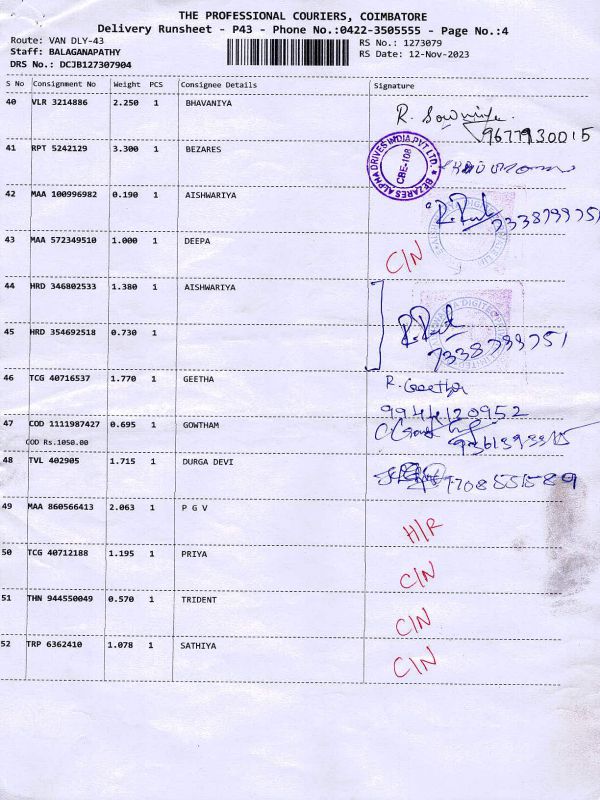 THE PROFESSIONAL COURIERS, COIMBATORE
Delivery Runsheet - P43 - Phone No.:0422-3505555 - Page No.:4
Route: VAN DLY-43
Staff: BALAGANAPATHY
DRS No.: DCJB127307904
RS No.: 1273079
RS Date: 12-Nov-2023
S No Consignment No Weight PCS Consignee Details Signature
40 VLR 3214886 2.250 1 BHAVANIYA R. Sowmiya
9677930015
41 RPT 5242129 3.300 1 BEZARES
BEZARES ALPHA DRIVES INDIA PVT LTD. CBE-108
42 MAA 100996982 0.190 1 AISHWARIYA 7338799751
43 MAA 572349510 1.000 1 DEEPA C/N
44 HRD 346802533 1.380 1 AISHWARIYA
45 HRD 354692518 0.730 1 7338799751
46 TCG 40716537 1.770 1 GEETHA R. Geetha
9944120952
47 COD 1111987427 0.695 1 GOWTHAM
COD Rs.1050.00
48 TVL 402905 1.715 1 DURGA DEVI
49 MAA 860566413 2.063 1 P G V H/R
50 TCG 40712188 1.195 1 PRIYA C/N
51 THN 944550049 0.570 1 TRIDENT C/N
52 TRP 6362410 1.078 1 SATHIYA C/N